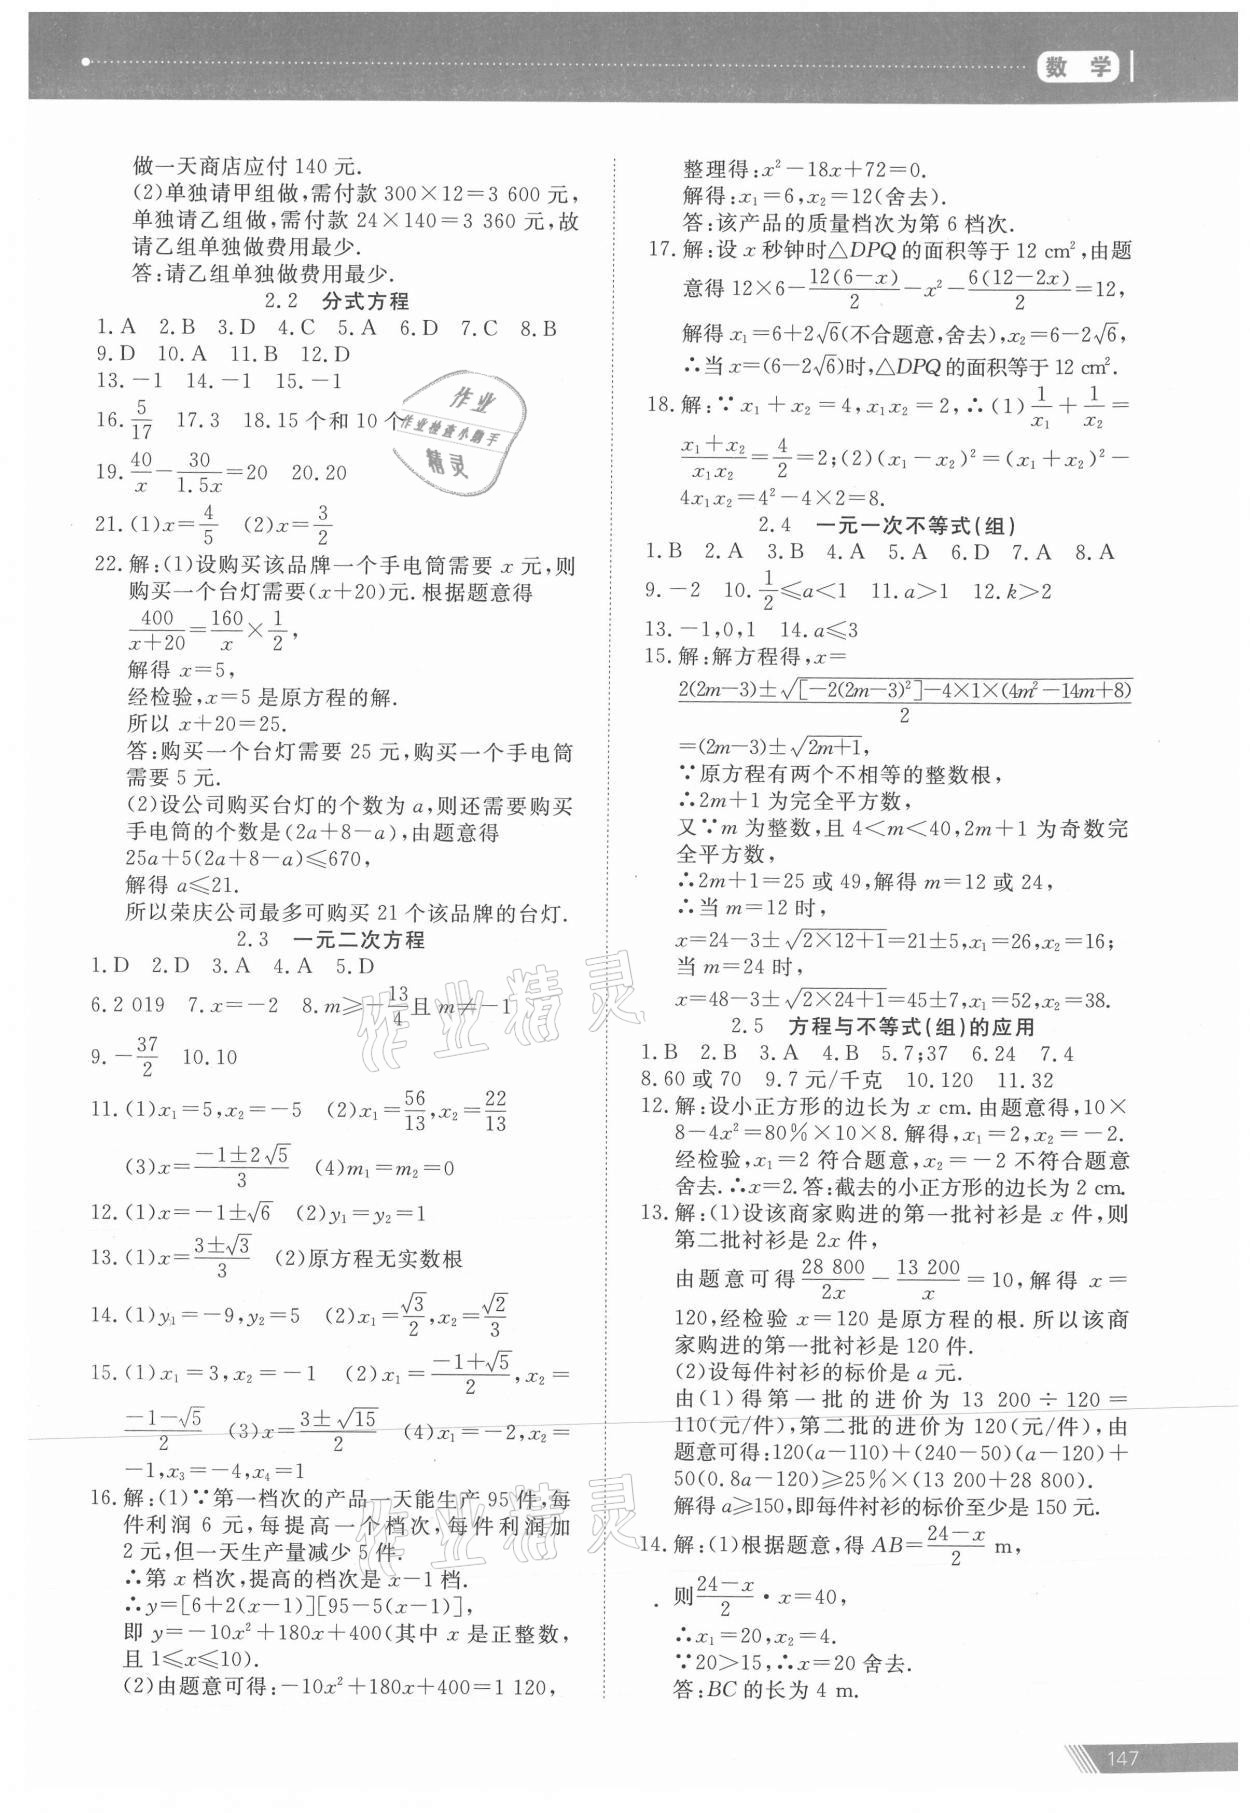 数 学
做一天商店应付 140 元.
(2)单独请甲组做,需付款 300×12=3 600 元,
单独请乙组做,需付款 24×140=3 360 元,故
请乙组单独做费用最少.
答:请乙组单独做费用最少.
2.2 分式方程
1.A 2.B 3.D 4.C 5.A 6.D 7.C 8.B
9.D 10.A 11.B 12.D
13.-1 14.-1 15.-1
16.5/17 17.3 18.15 个和 10 个
19.40/x-30/1.5x=20 20.20
21.(1)x=4/5 (2)x=3/2
22.解:(1)设购买该品牌一个手电筒需要 x 元,则
购买一个台灯需要(x+20)元.根据题意得
400/(x+20)=160/x×1/2,
解得 x=5,
经检验,x=5 是原方程的解.
所以 x+20=25.
答:购买一个台灯需要 25 元,购买一个手电筒
需要 5 元.
(2)设公司购买台灯的个数为 a,则还需要购买
手电筒的个数是(2a+8-a),由题意得
25a+5(2a+8-a)≤670,
解得 a≤21.
所以荣庆公司最多可购买 21 个该品牌的台灯.
2.3 一元二次方程
1.D 2.D 3.A 4.A 5.D
6.2 019 7.x=-2 8.m≥-13/4且 m≠-1
9.-37/2 10.10
11.(1)x₁=5,x₂=-5 (2)x₁=56/13,x₂=22/13
(3)x=(-1±2√5)/3 (4)m₁=m₂=0
12.(1)x=-1±√6 (2)y₁=y₂=1
13.(1)x=(3±√3)/3 (2)原方程无实数根
14.(1)y₁=-9,y₂=5 (2)x₁=√3/2,x₂=√2/3
15.(1)x₁=3,x₂=-1 (2)x₁=(-1+√5)/2,x₂=
(-1-√5)/2 (3)x=(3±√15)/2 (4)x₁=-2,x₂=
-1,x₃=-4,x₄=1
16.解:(1)∵第一档次的产品一天能生产 95 件,每
件利润 6 元,每提高一个档次,每件利润加
2 元,但一天生产量减少 5 件.
∴第 x 档次,提高的档次是 x-1 档.
∴y=[6+2(x-1)][95-5(x-1)],
即 y=-10x²+180x+400(其中 x 是正整数,
且 1≤x≤10).
(2)由题意可得:-10x²+180x+400=1 120,
整理得:x²-18x+72=0.
解得:x₁=6,x₂=12(舍去).
答:该产品的质量档次为第 6 档次.
17.解:设 x 秒钟时△DPQ 的面积等于 12 cm²,由题
意得 12×6-12(6-x)/2-x²-6(12-2x)/2=12,
解得 x₁=6+2√6(不合题意,舍去),x₂=6-2√6,
∴当 x=(6-2√6)时,△DPQ 的面积等于 12 cm².
18.解:∵x₁+x₂=4,x₁x₂=2,∴(1)1/x₁+1/x₂=
(x₁+x₂)/x₁x₂=4/2=2;(2)(x₁-x₂)²=(x₁+x₂)²-
4x₁x₂=4²-4×2=8.
2.4 一元一次不等式(组)
1.B 2.A 3.B 4.A 5.A 6.D 7.A 8.A
9.-2 10.1/2≤a<1 11.a>1 12.k>2
13.-1,0,1 14.a≤3
15.解:解方程得,x=
(2(2m-3)±√([-2(2m-3)²]-4×1×(4m²-14m+8)))/2
=(2m-3)±√(2m+1),
∵原方程有两个不相等的整数根,
∴2m+1 为完全平方数,
又∵m 为整数,且 4<m<40,2m+1 为奇数完
全平方数,
∴2m+1=25 或 49,解得 m=12 或 24,
∴当 m=12 时,
x=24-3±√(2×12+1)=21±5,x₁=26,x₂=16;
当 m=24 时,
x=48-3±√(2×24+1)=45±7,x₁=52,x₂=38.
2.5 方程与不等式(组)的应用
1.B 2.B 3.A 4.B 5.7;37 6.24 7.4
8.60 或 70 9.7 元/千克 10.120 11.32
12.解:设小正方形的边长为 x cm.由题意得,10×
8-4x²=80%×10×8.解得,x₁=2,x₂=-2.
经检验,x₁=2 符合题意,x₂=-2 不符合题意
舍去.∴x=2.答:截去的小正方形的边长为 2 cm.
13.解:(1)设该商家购进的第一批衬衫是 x 件,则
第二批衬衫是 2x 件,
由题意可得28 800/2x-13 200/x=10,解得 x=
120,经检验 x=120 是原方程的根.所以该商
家购进的第一批衬衫是 120 件.
(2)设每件衬衫的标价是 a 元.
由(1)得第一批的进价为 13 200÷120=
110(元/件),第二批的进价为 120(元/件),由
题意可得:120(a-110)+(240-50)(a-120)+
50(0.8a-120)≥25%×(13 200+28 800).
解得 a≥150,即每件衬衫的标价至少是 150 元.
14.解:(1)根据题意,得 AB=(24-x)/2 m,
则(24-x)/2·x=40,
∴x₁=20,x₂=4.
∵20>15,∴x=20 舍去.
答:BC 的长为 4 m.
147
作业
作业检查小助手
精灵
作业精灵
作业精灵